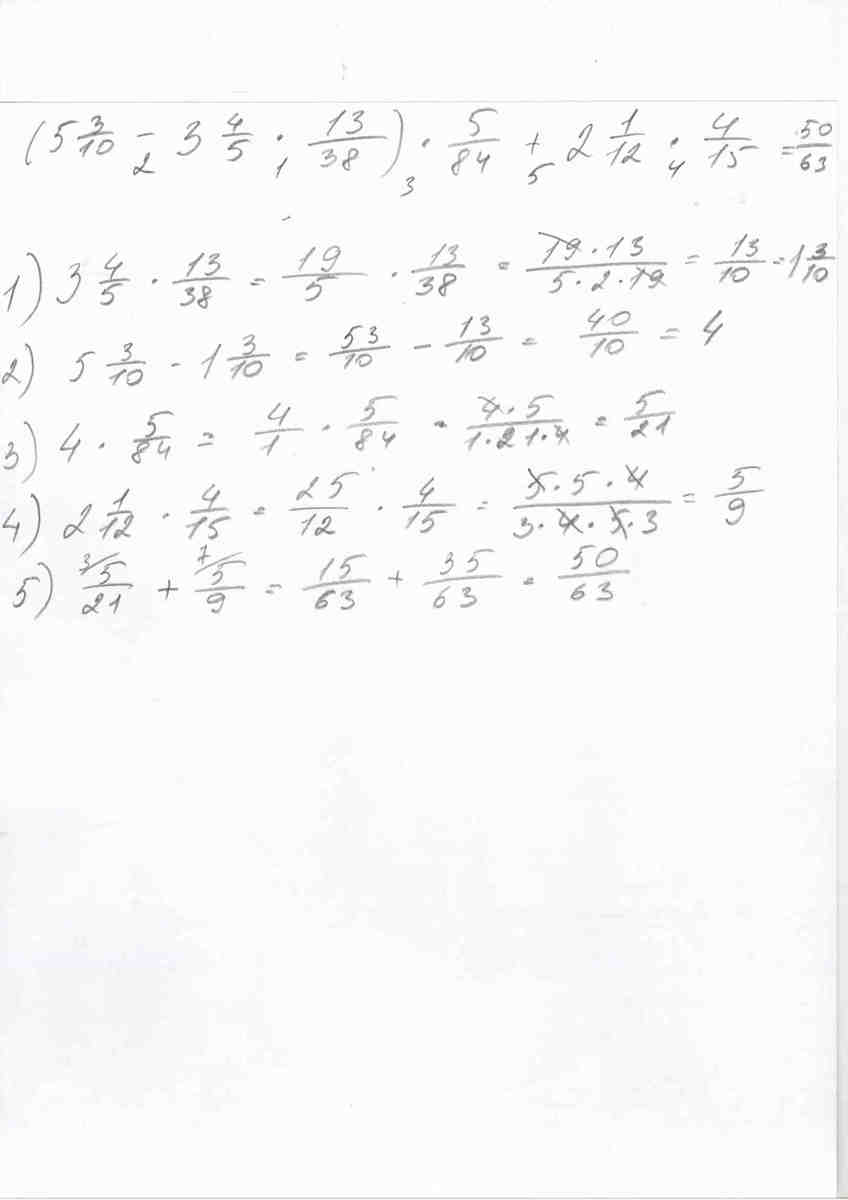 (5 3/10 - 3 4/5 · 13/38) · 5/84 + 2 1/12 · 4/15 = 50/63
2 1 3 5 4
1) 3 4/5 · 13/38 = 19/5 · 13/38 = 19·13/5·2·19 = 13/10 = 1 3/10
2) 5 3/10 - 1 3/10 = 53/10 - 13/10 = 40/10 = 4
3) 4 · 5/84 = 4/1 · 5/84 = 4·5/1·21·4 = 5/21
4) 2 1/12 · 4/15 = 25/12 · 4/15 = 5·5·4/3·4·5·3 = 5/9
5) 3/5/21 + 7/5/9 = 15/63 + 35/63 = 50/63